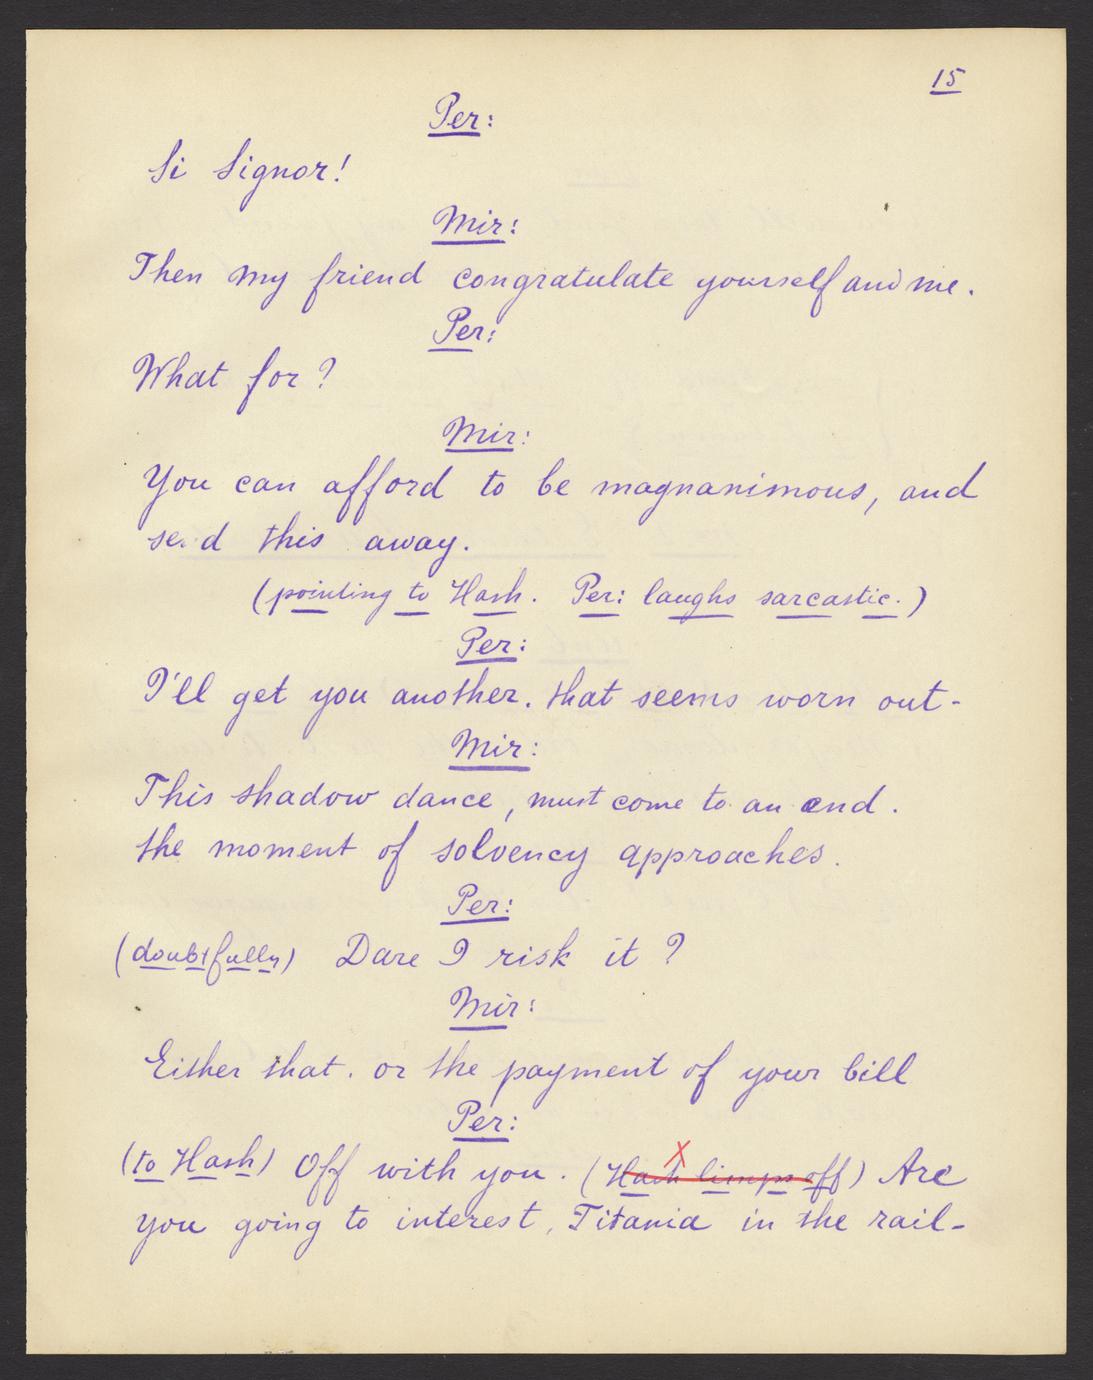 15
Per:
Si Signor!
Mir:
Then my friend congratulate yourself and me.
Per:
What for?
Mir:
You can afford to be magnanimous, and
send this away.
(pointing to Hash. Per: laughs sarcastic.)
Per:
I'll get you another. that seems worn out-
Mir:
This shadow dance, must come to an end.
the moment of solvency approaches.
Per:
(doubtfully) Dare I risk it?
Mir:
Either that. or the payment of your bill
Per:
X
(to Hash) Off with you. (Hash limps off) Are
you going to interest, Titania in the rail-